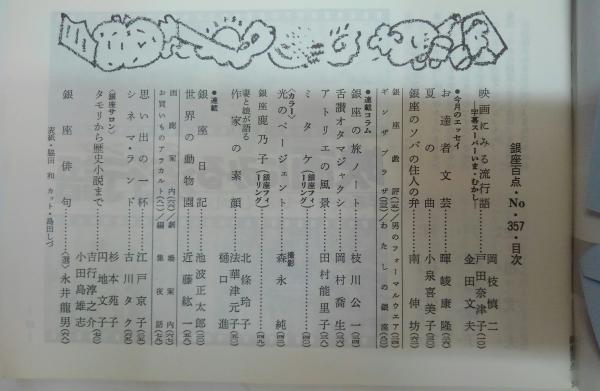 銀座百点・No・357・目次
映画にみる流行語
―字幕スーパーいま・むかし―
岡枝慎二
戸田奈津子
金田文夫
●今月のエッセイ
お達者文芸 暉峻康隆
夏の曲 小泉喜美子
銀座のソバの住人の弁 南伸坊
銀座戯評
男のフォーマルウエア
ギンザプラザ
わたしの銀座
●連載コラム
銀座の旅ノート 枝川公一
舌讃オタマジャクシ 岡村喬生
アトリエの風景 田村能里子
ミタケ(銀座フィーリング)
〈カラー〉
光のページェント 撮影 森永純
銀座鹿乃子(銀座フィーリング)
妻と娘が語る
作家の素顔
北條玲子
法華津元子
樋口進
●連載
銀座日記 池波正太郎
世界の動物園 近藤紘一
画廊案内
劇場案内
お買いものアラカルト
編集夜話
思い出の一杯 江戸京子
シネマ・ランド 古川タク
〈銀座サロン〉
タモリから歴史小説まで
杉本苑子
円地文子
吉行淳之介
小田島雄志
銀座俳句 〈選〉永井龍男
表紙・脇田和 カット・島田しづ